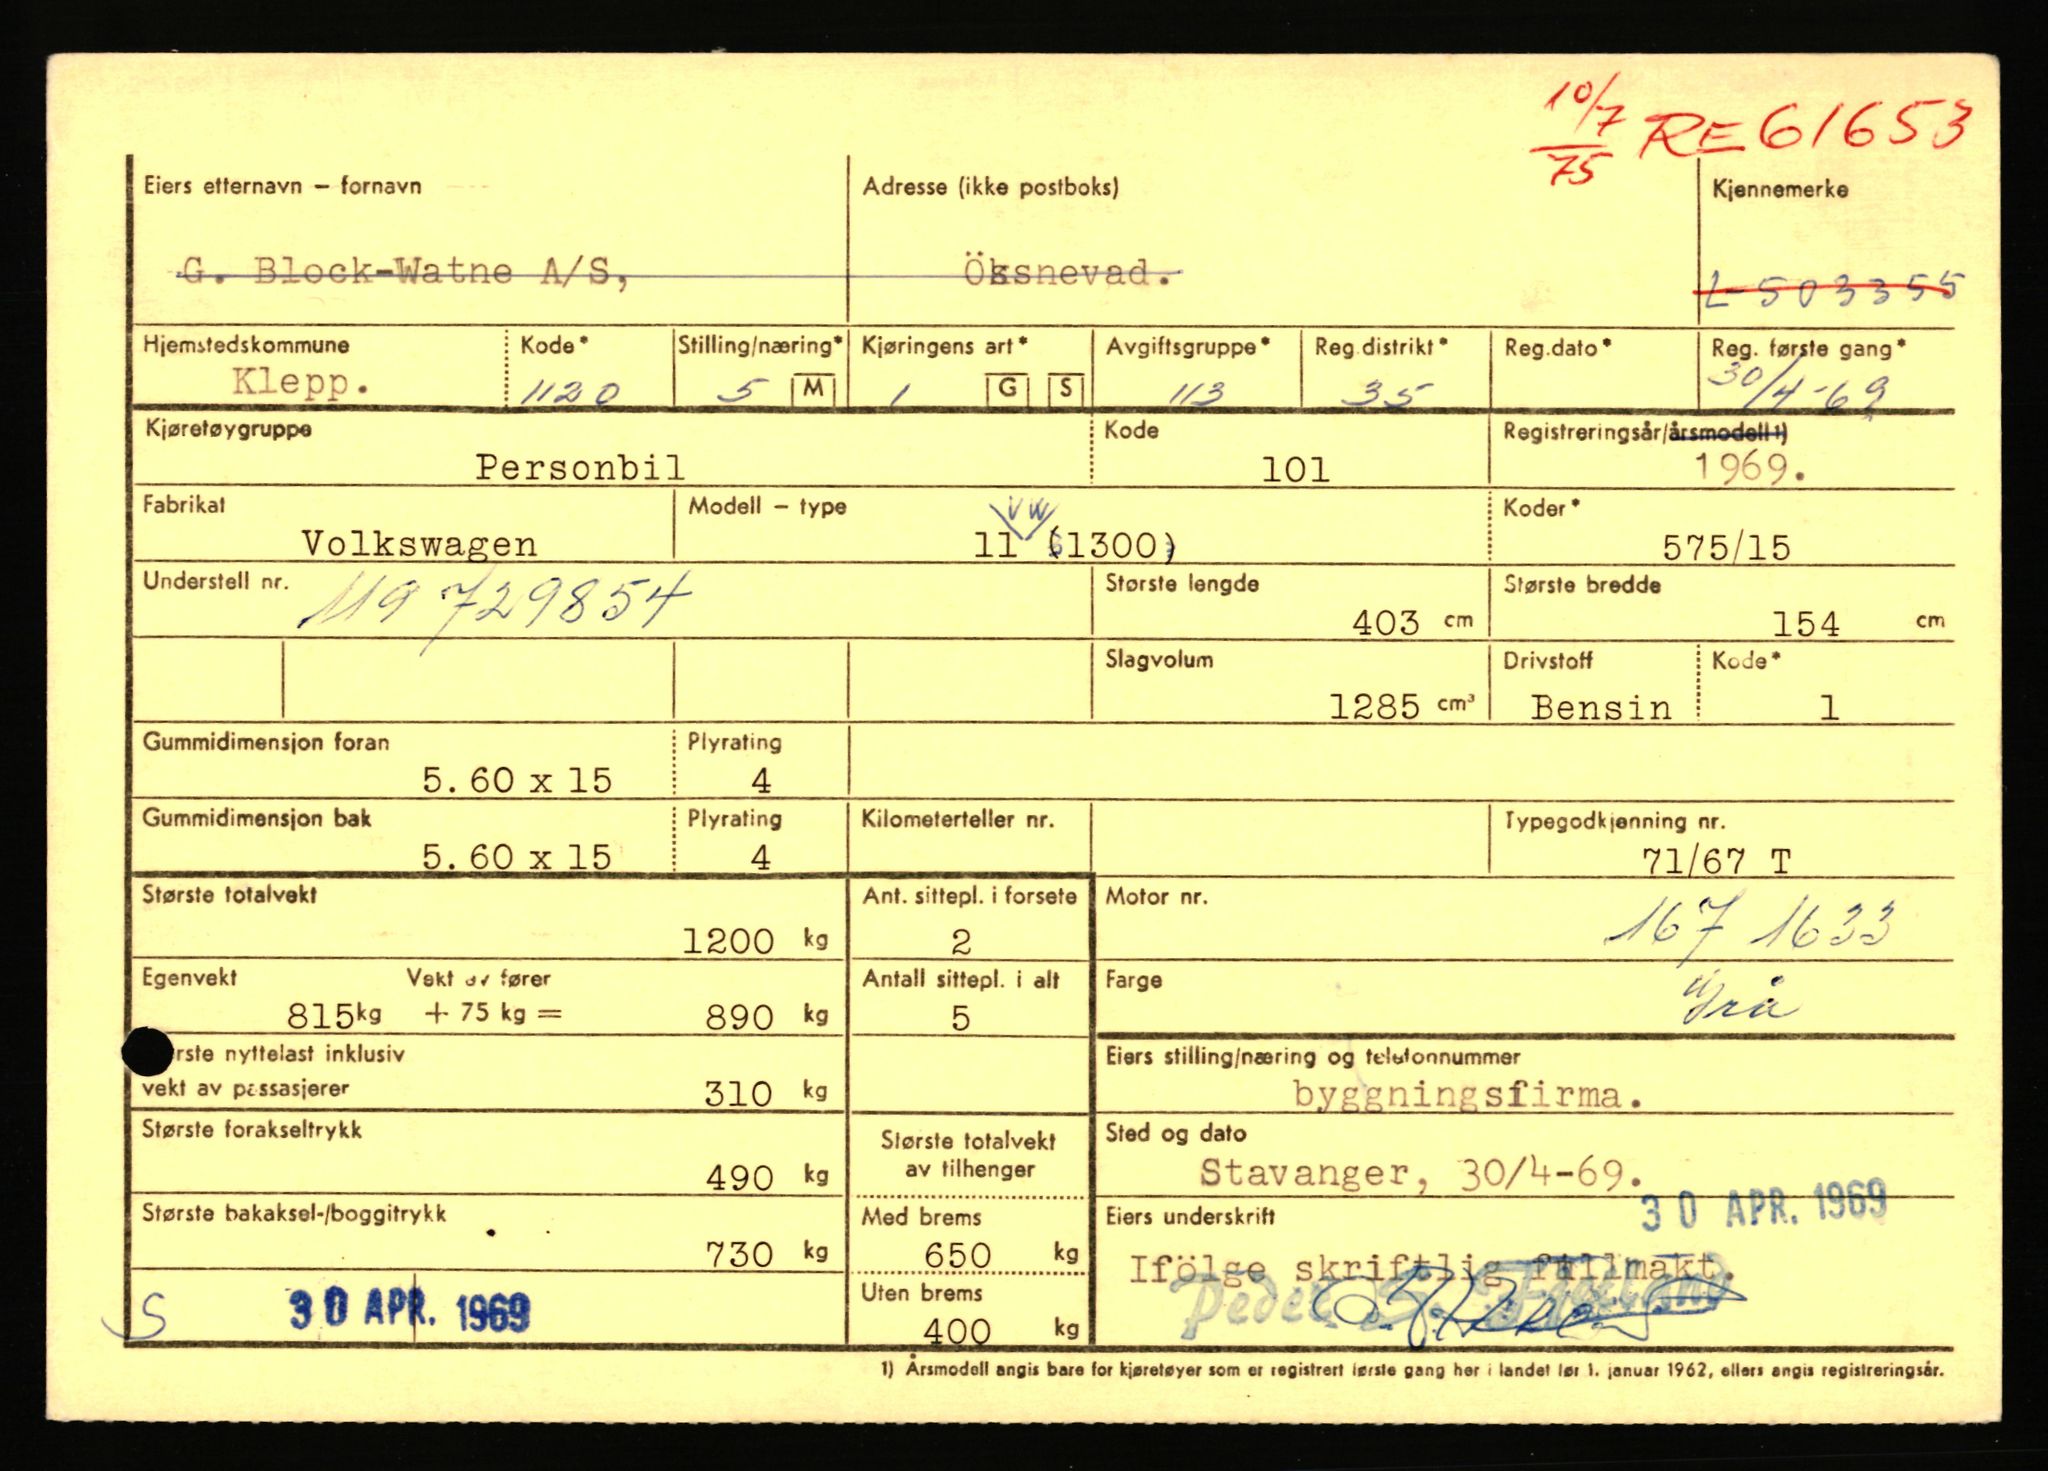 10/7 RE61653
75
Eiers etternavn – fornavn Adresse (ikke postboks) Kjennemerke
G. Block-Watne A/S, Öksnevad. L-503355
Hjemstedskommune Kode* Stilling/næring* Kjøringens art* Avgiftsgruppe* Reg.distrikt* Reg.dato* Reg. første gang*
Klepp. 1120 5 M 1 G S 113 35 30/4-69
Kjøretøygruppe Kode Registreringsår/årsmodell 1)
Personbil 101 1969.
Fabrikat Modell – type VW Koder*
Volkswagen 11 (1300) 575/15
Understell nr. Største lengde Største bredde
119 729854 403 cm 154 cm
Slagvolum Drivstoff Kode*
1285 cm³ Bensin 1
Gummidimensjon foran Plyrating
5.60 x 15 4
Gummidimensjon bak Plyrating Kilometerteller nr. Typegodkjenning nr.
5.60 x 15 4 71/67 T
Største totalvekt Ant. sittepl. i forsete Motor nr.
1200 kg 2 167 1633
Egenvekt Vekt av fører Antall sittepl. i alt Farge
815 kg + 75 kg = 890 kg 5 Grå
rste nyttelast inklusiv Eiers stilling/næring og telefonnummer
vekt av passasjerer 310 kg byggningsfirma.
Største forakseltrykk Største totalvekt Sted og dato
490 kg av tilhenger Stavanger, 30/4-69.
Største bakaksel-/boggitrykk Med brems Eiers underskrift 30 APR. 1969
730 kg 650 kg Ifölge skriftlig fullmakt.
S 30 APR. 1969 Uten brems Peder S.
400 kg
1) Årsmodell angis bare for kjøretøyer som er registrert første gang her i landet før 1. januar 1962, ellers angis registreringsår.